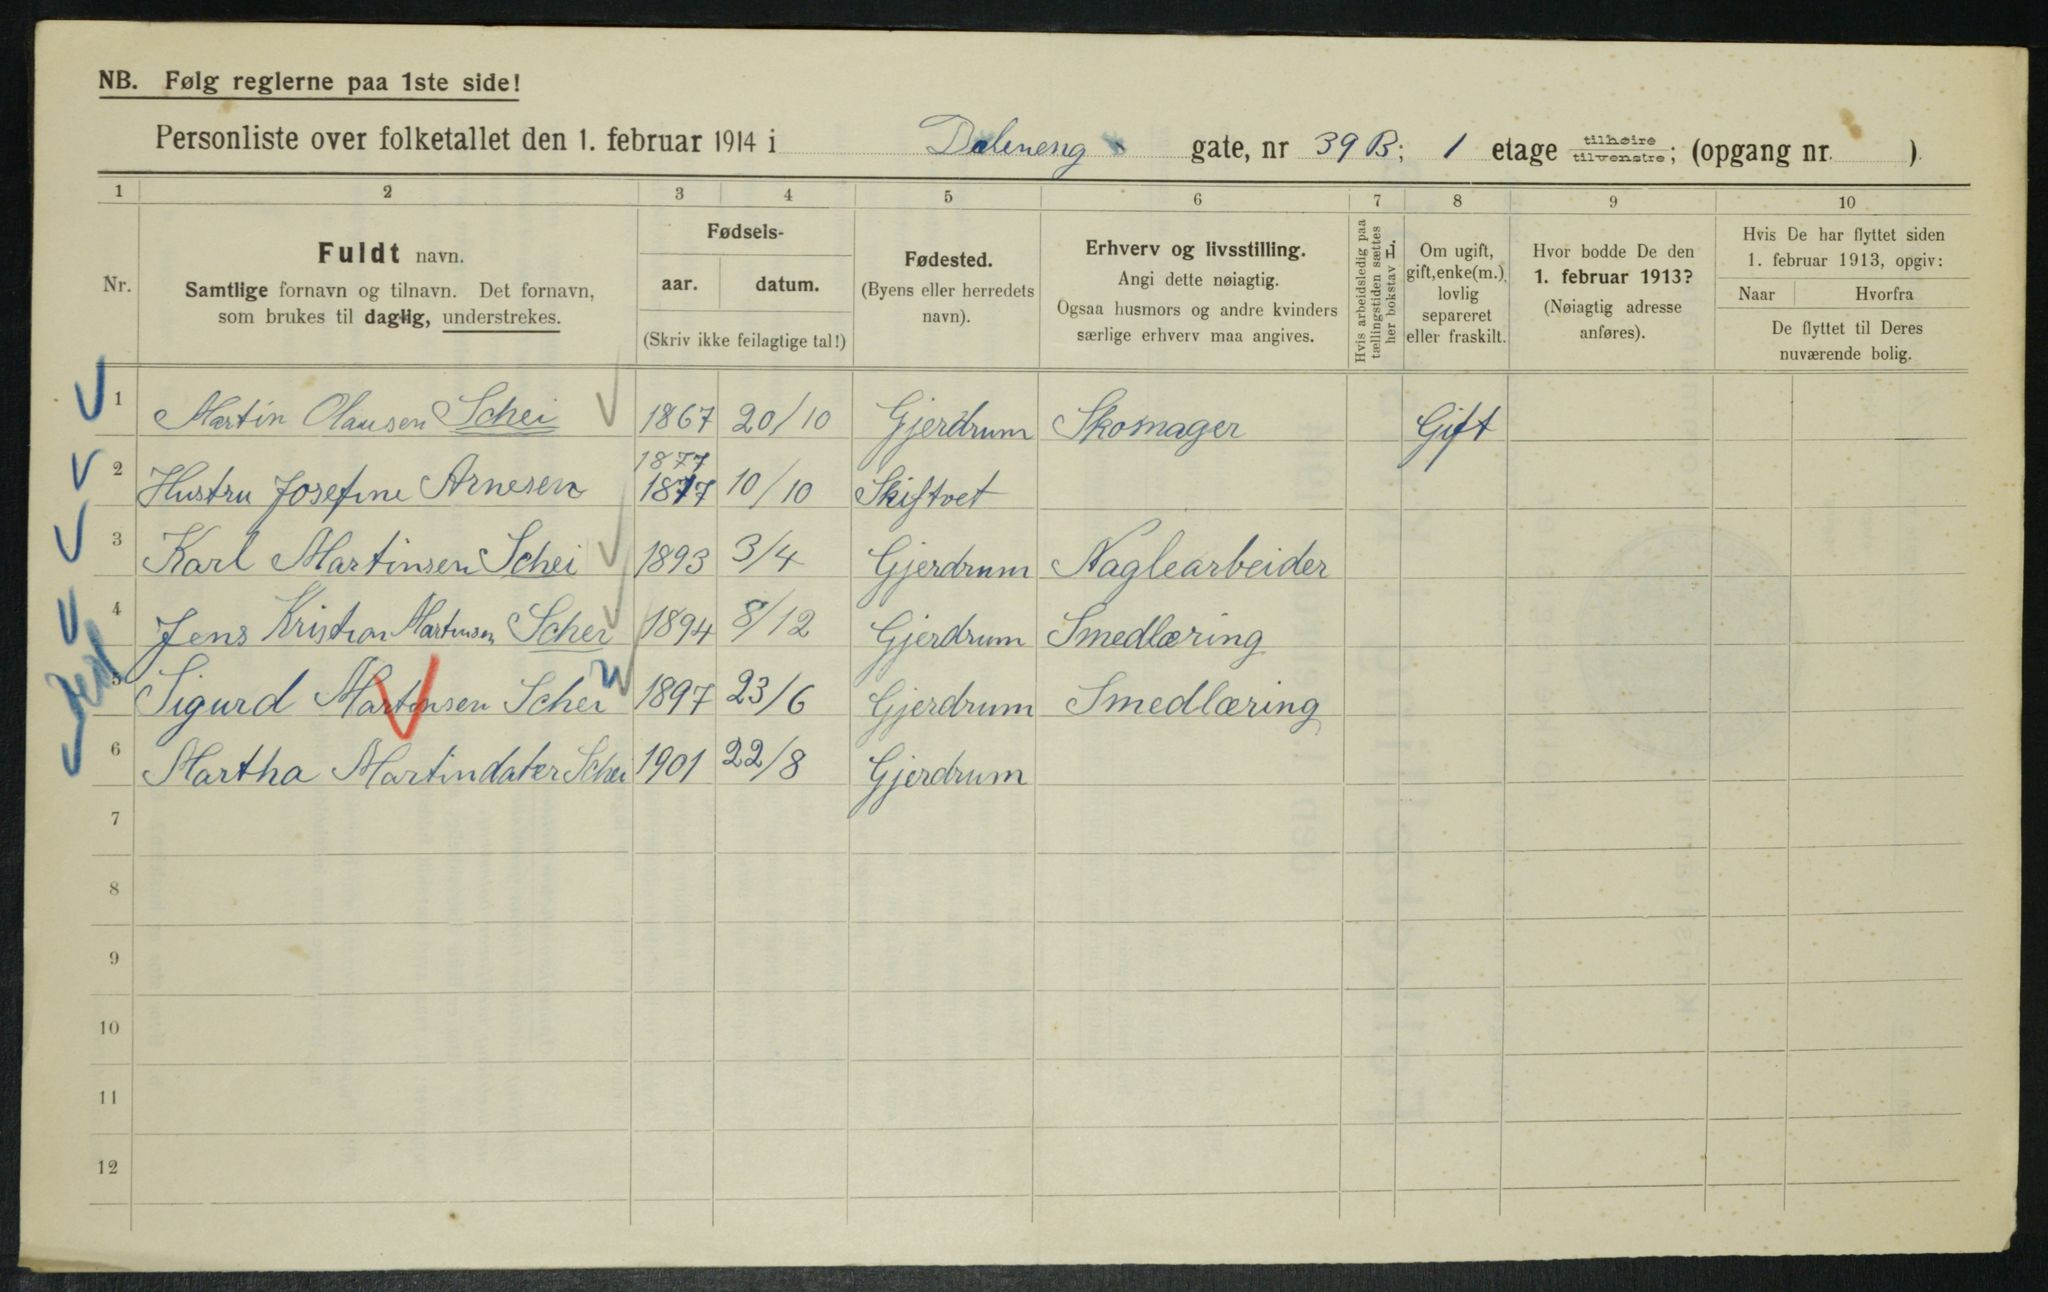 NB. Følg reglerne paa 1ste side!
Personliste over folketallet den 1. februar 1914 i Dæleneng gate, nr 39 B; 1 etage tilhøire tilvenstre; (opgang nr. )
1 2 3 4 5 6 7 8 9 10
Nr.
Fuldt navn.
Samtlige fornavn og tilnavn. Det fornavn,
som brukes til daglig, understrekes.
Fødsels-
aar. datum.
(Skriv ikke feilagtige tal!)
Fødested.
(Byens eller herredets
navn).
Erhverv og livsstilling.
Angi dette nøiagtig.
Ogsaa husmors og andre kvinders
særlige erhverv maa angives.
Hvis arbeidsledig paa
tællingstiden sættes
her bokstav L.
Om ugift,
gift, enke(m.),
lovlig
separeret
eller fraskilt.
Hvor bodde De den
1. februar 1913?
(Nøiagtig adresse
anføres).
Hvis De har flyttet siden
1. februar 1913, opgiv:
Naar Hvorfra
De flyttet til Deres
nuværende bolig.
1 Martin Olausen Schei 1867 20/10 Gjerdrum Skomager Gift
1877
2 Hustru Josefine Arnesen 1877 10/10 Skiftvet
3 Karl Martinsen Schei 1893 3/4 Gjerdrum Naglearbeider
4 Jens Kristian Martinsen Schei 1894 8/12 Gjerdrum Smedlæring
5 Sigurd Martinsen Schei 1897 23/6 Gjerdrum Smedlæring
6 Martha Martindater Schei 1901 22/8 Gjerdrum
7
8
9
10
11
12